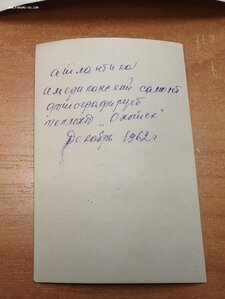 www.forums-su.com
атлантика!
американский самолёт
фотографирует
теплоход „Охотск"
Декабрь 1962г